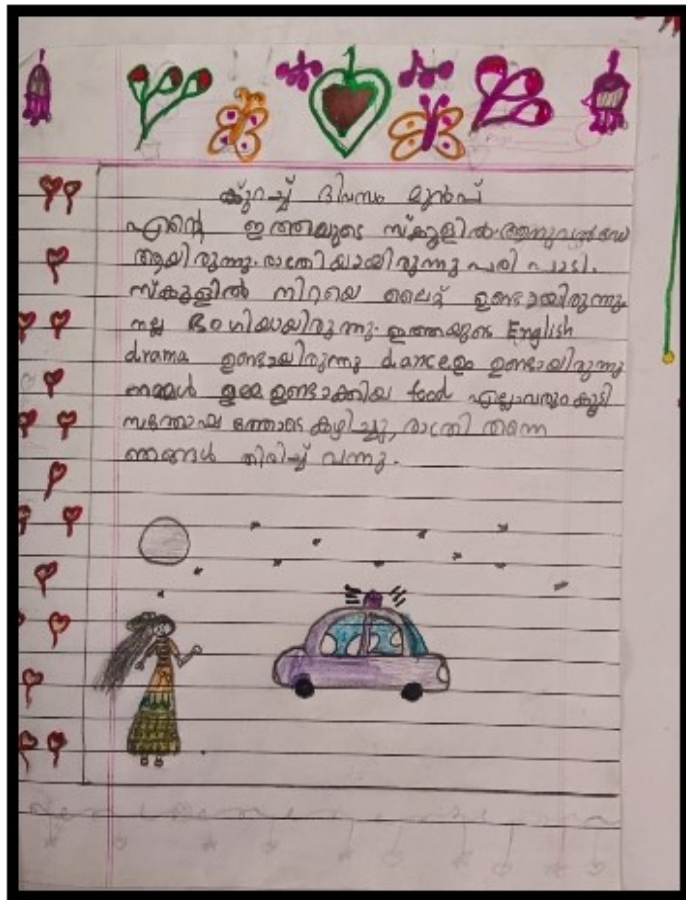 കുറച്ച് ദിവസം മുൻപ്
എന്റെ ഇത്തയുടെ സ്കൂളിൽ ആനുവൽഡേ
ആയിരുന്നു. രാത്രിയായിരുന്നു പരിപാടി.
സ്കൂളിൽ നിറയെ ലൈറ്റ് ഉണ്ടായിരുന്നു.
നല്ല ഭംഗിയായിരുന്നു. ഇത്തയുടെ English
drama ഉണ്ടായിരുന്നു danceളും ഉണ്ടായിരുന്നു
ഞമ്മൾ ഉമ്മ ഉണ്ടാക്കിയ food എല്ലാവരും കൂടി
സന്തോഷത്തോടെ കഴിച്ചു, രാത്രി തന്നെ
ഞങ്ങൾ തിരിച്ച് വന്നു.